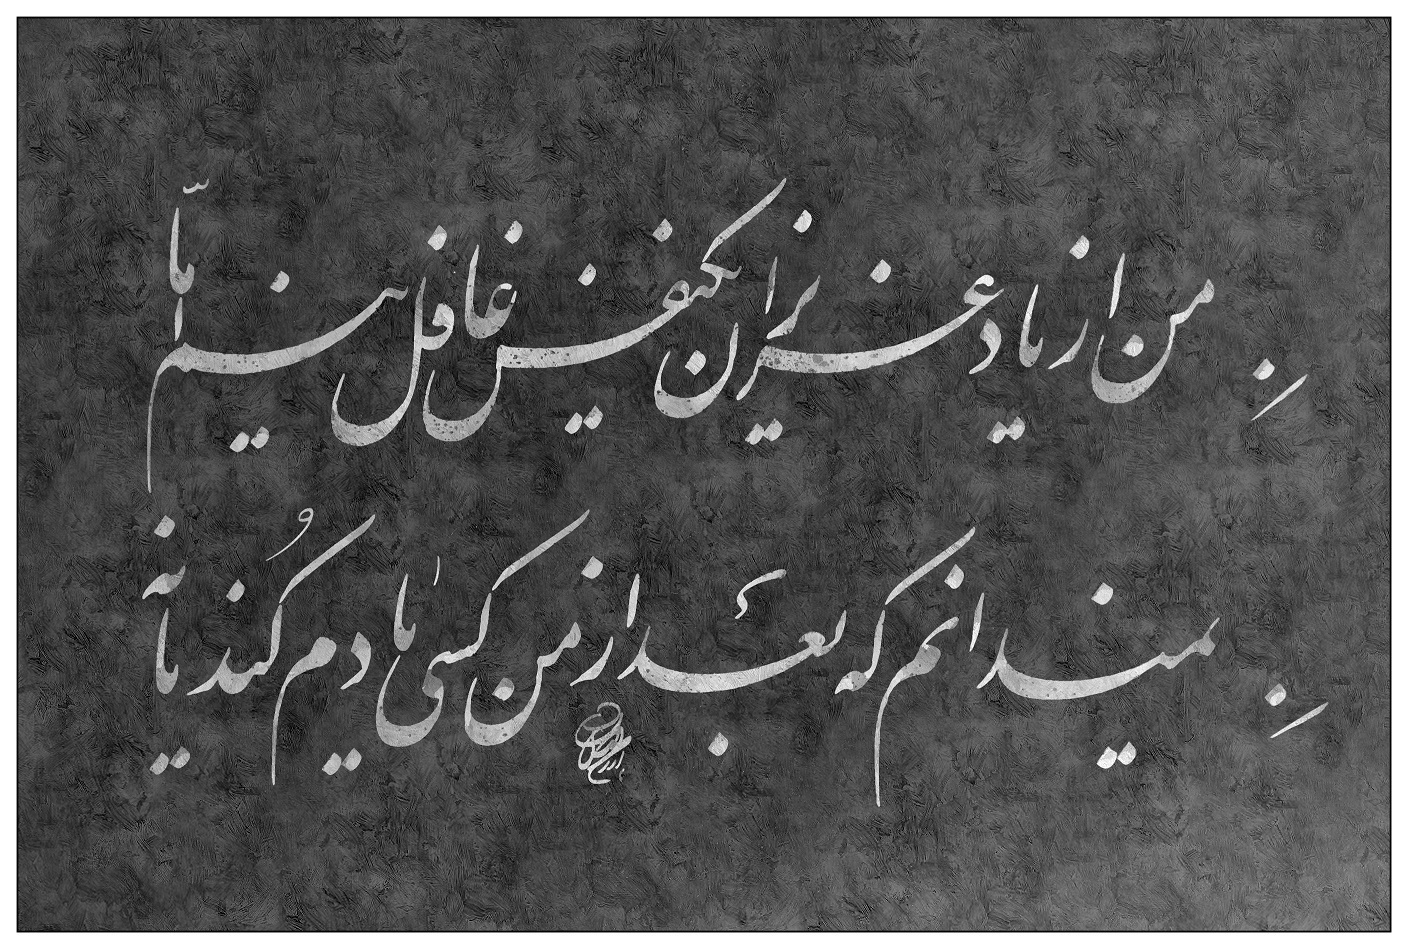 من از یاد عزیزان یک نفس غافل نیم اما
نمیدانم که بعد از من کسی یادم کند یا نه